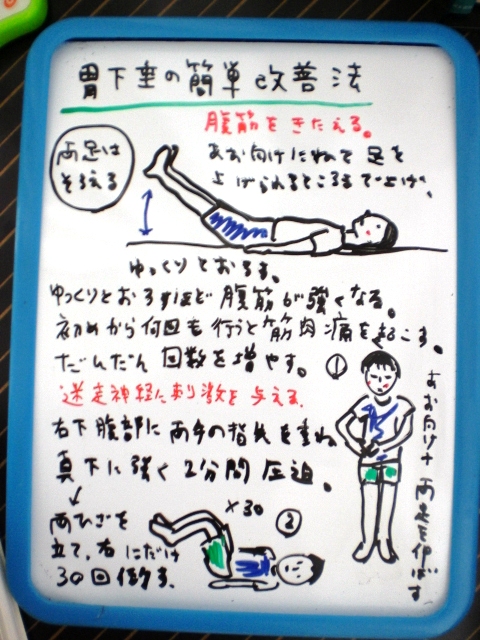 胃下垂の簡単改善法
腹筋をきたえる。
両足は
そろえる
あお向けにねて足を
上げられるところまで上げ、
ゆっくりとおろす。
ゆっくりとおろすほど腹筋が強くなる。
初めから何回も行うと筋肉痛を起こす。
だんだん回数を増やす。
①
迷走神経に刺激を与える。
右下腹部に両手の指先を重ね
真下に強く2分間圧迫。
あお向け 両足を伸ばす
×30
②
両ひざを
立て、右にだけ
30回倒す。